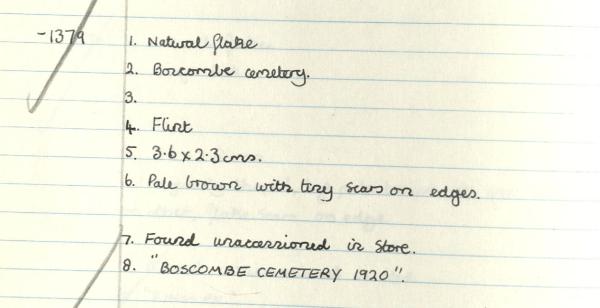 -1379 1. Natural flake
2. Boscombe cemetery.
3.
4. Flint
5. 3.6 x 2.3 cms.
6. Pale brown with tiny scars on edges.
7. Found unaccessioned in store.
8. "BOSCOMBE CEMETERY 1920".